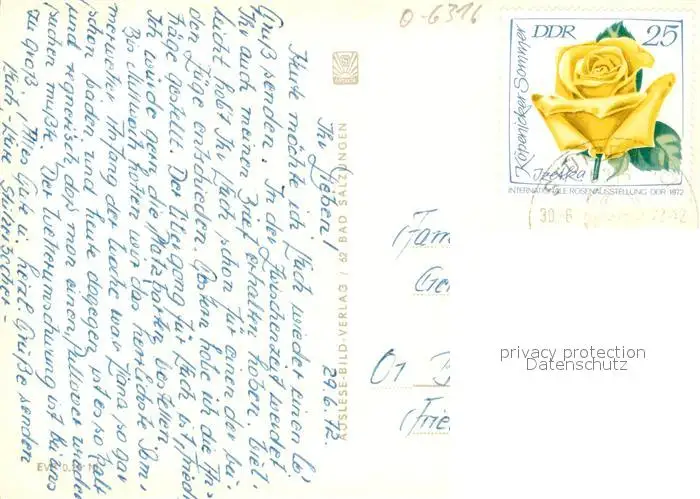 0-6316
DDR 25
Köpenicker Sommer
Izetka
INTERNATIONALE ROSENAUSSTELLUNG DDR 1972
30. 6
29.6.72
Ihr Lieben!
Heute möchte ich Euch wieder einen lb.
Gruß senden. In der Zwischenzeit werdet
Ihr auch meinen Brief erhalten haben. Viel-
leicht habt Ihr Euch schon für einen der bei-
den Züge entschieden. Gestern habe ich die An-
träge gestellt. Der Übergang für Euch ist
Ich würde gern die Platzkarten bestellen.
Bis Mittwoch hatten wir das herrlichste Som-
merwetter. Anfang der Woche war Jana so gar
schon baden und heute dagegen ist es so kalt
und regnerisch, daß man einen Pullover wieder
suchen mußte. Der Wetterumschwung ist
zu groß. Alles Gute u. herzl. Grüße senden
AUSLESE-BILD-VERLAG / 62 BAD SALZUNGEN
EVP 0,20 M
(Fam
Ge
(Frie
privacy protection
Datenschutz